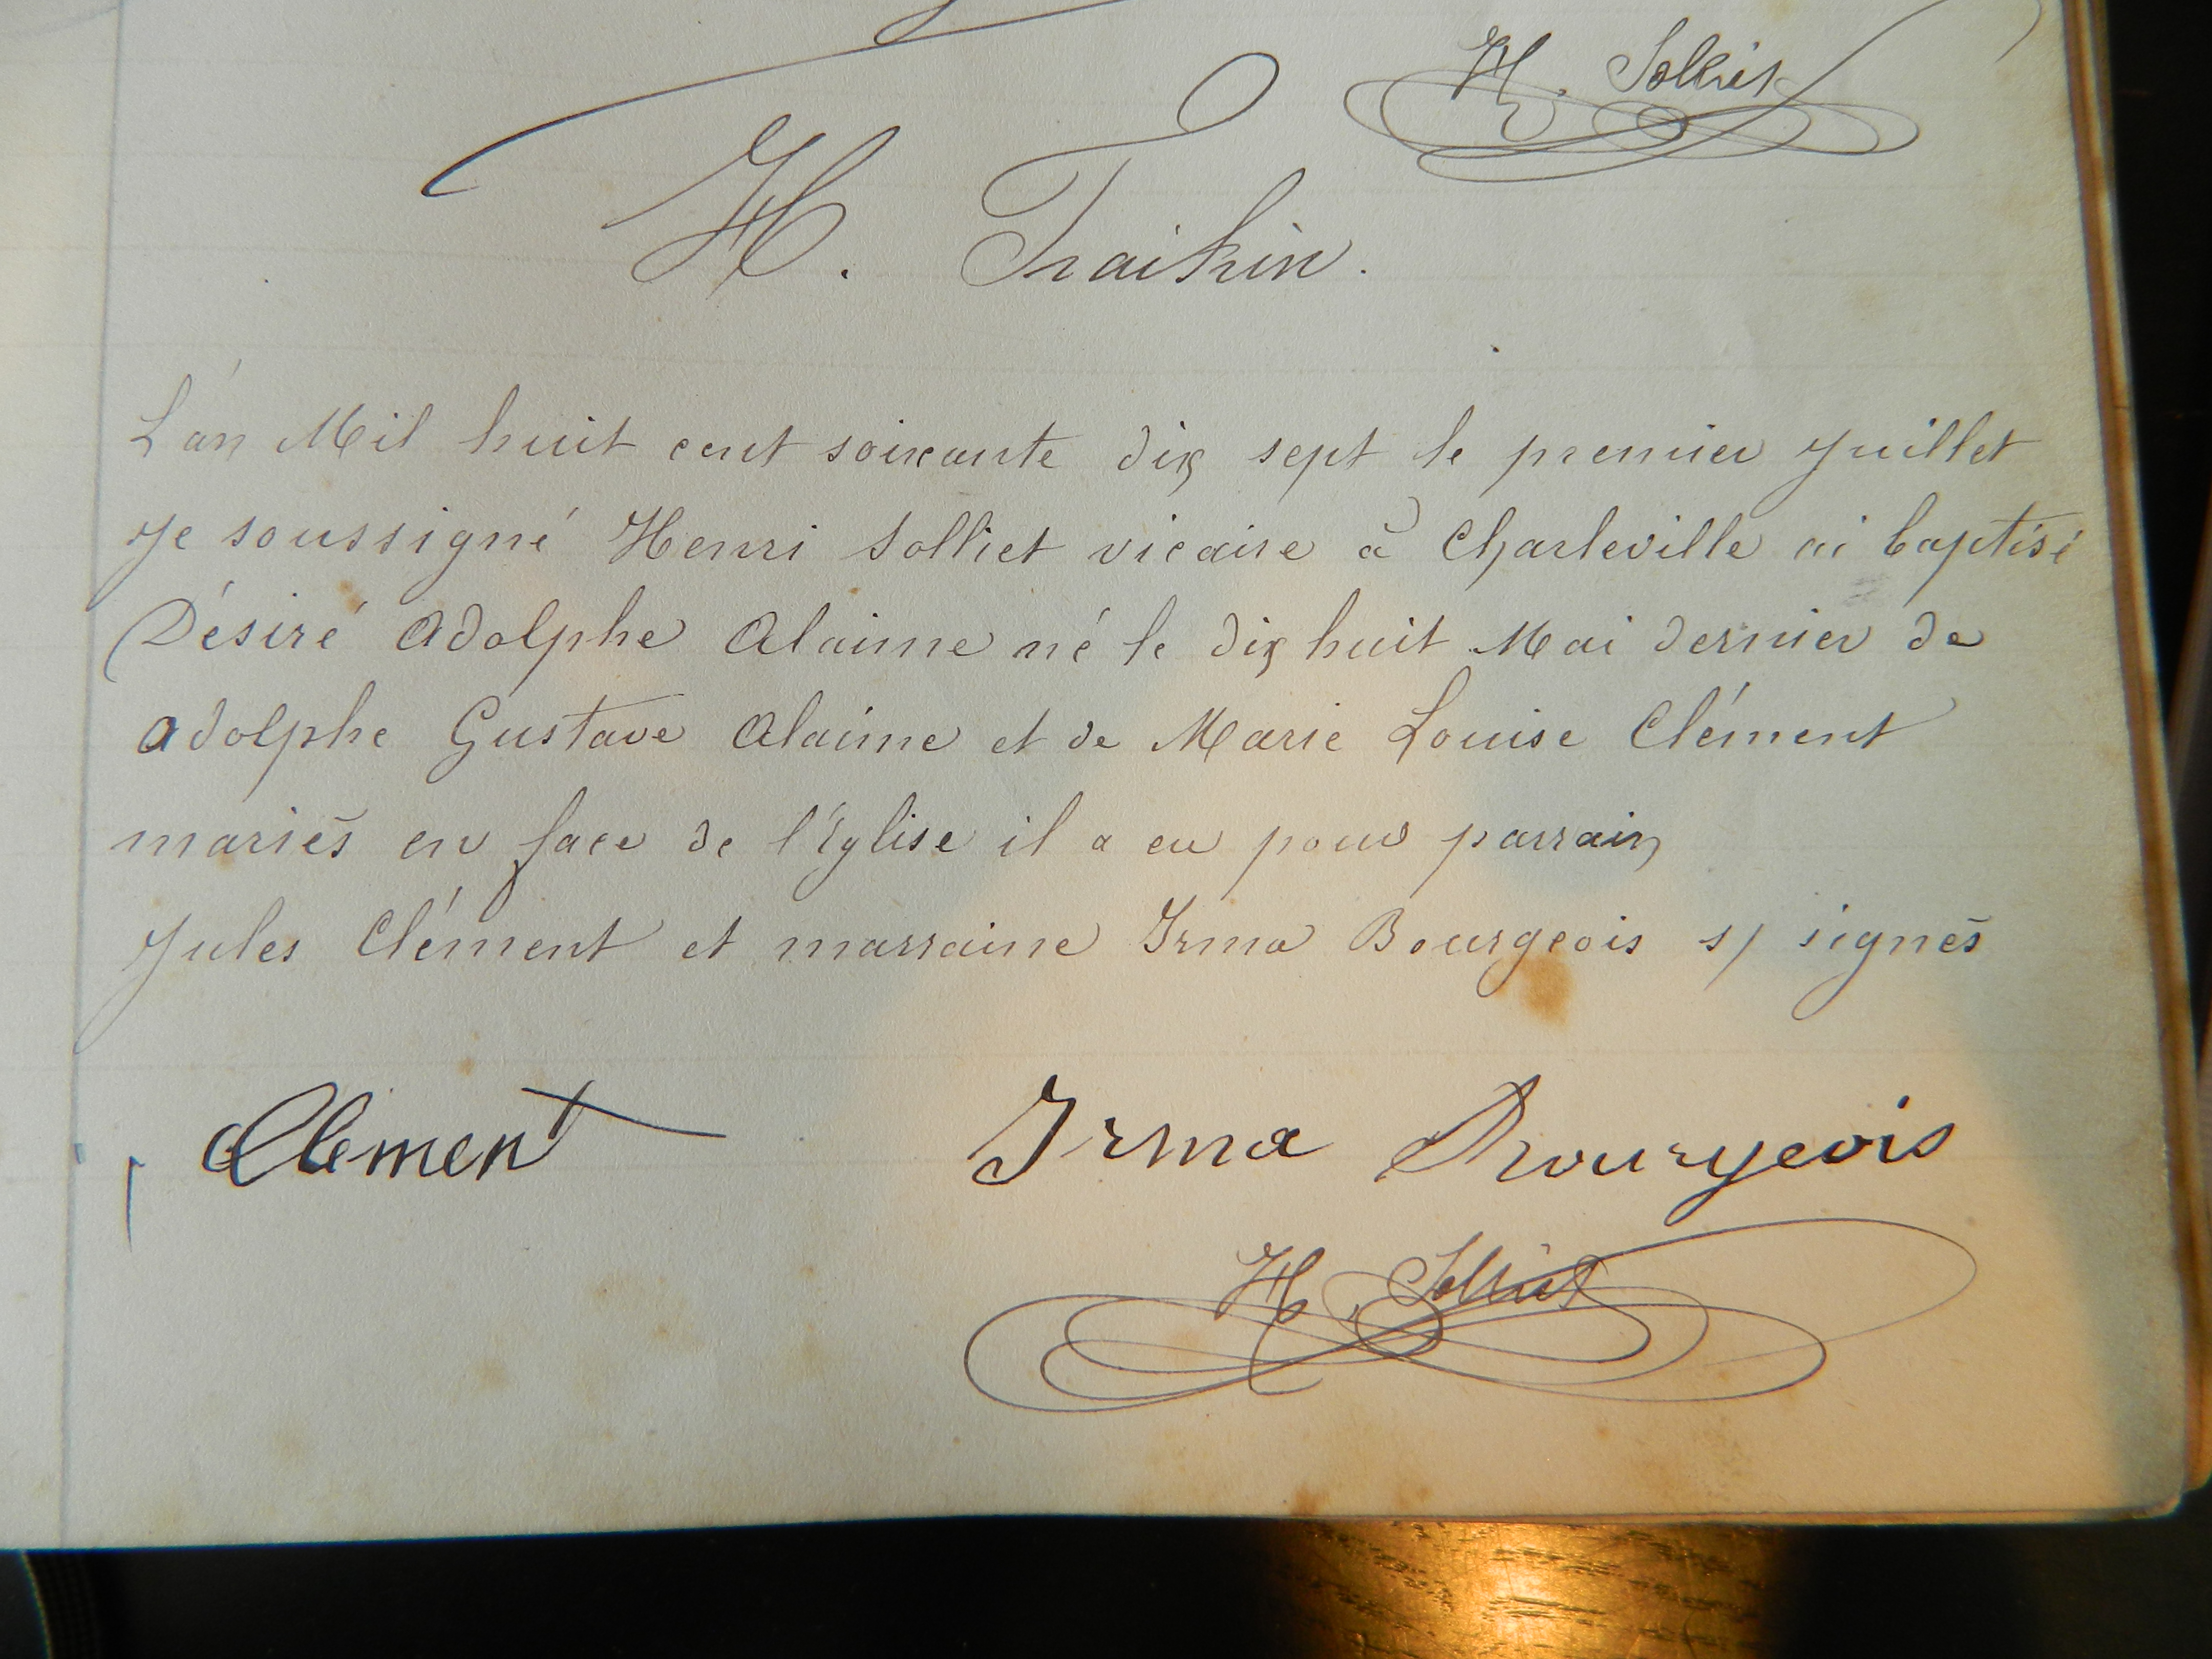 H. Solliet
H. Traikin.
L'an Mil huit cent soixante dix sept le premier Juillet
Je soussigné Henri Solliet vicaire à Charleville ai baptisé
Désiré Adolphe Alaime né le dix huit Mai dernier de
Adolphe Gustave Alaime et de Marie Louise Clément
mariés en face de l'Eglise il a eu pour parrain
Jules Clément et marraine Irma Bourgeois s/ signés
Clement
Irma Bourgeois
H. Solliet